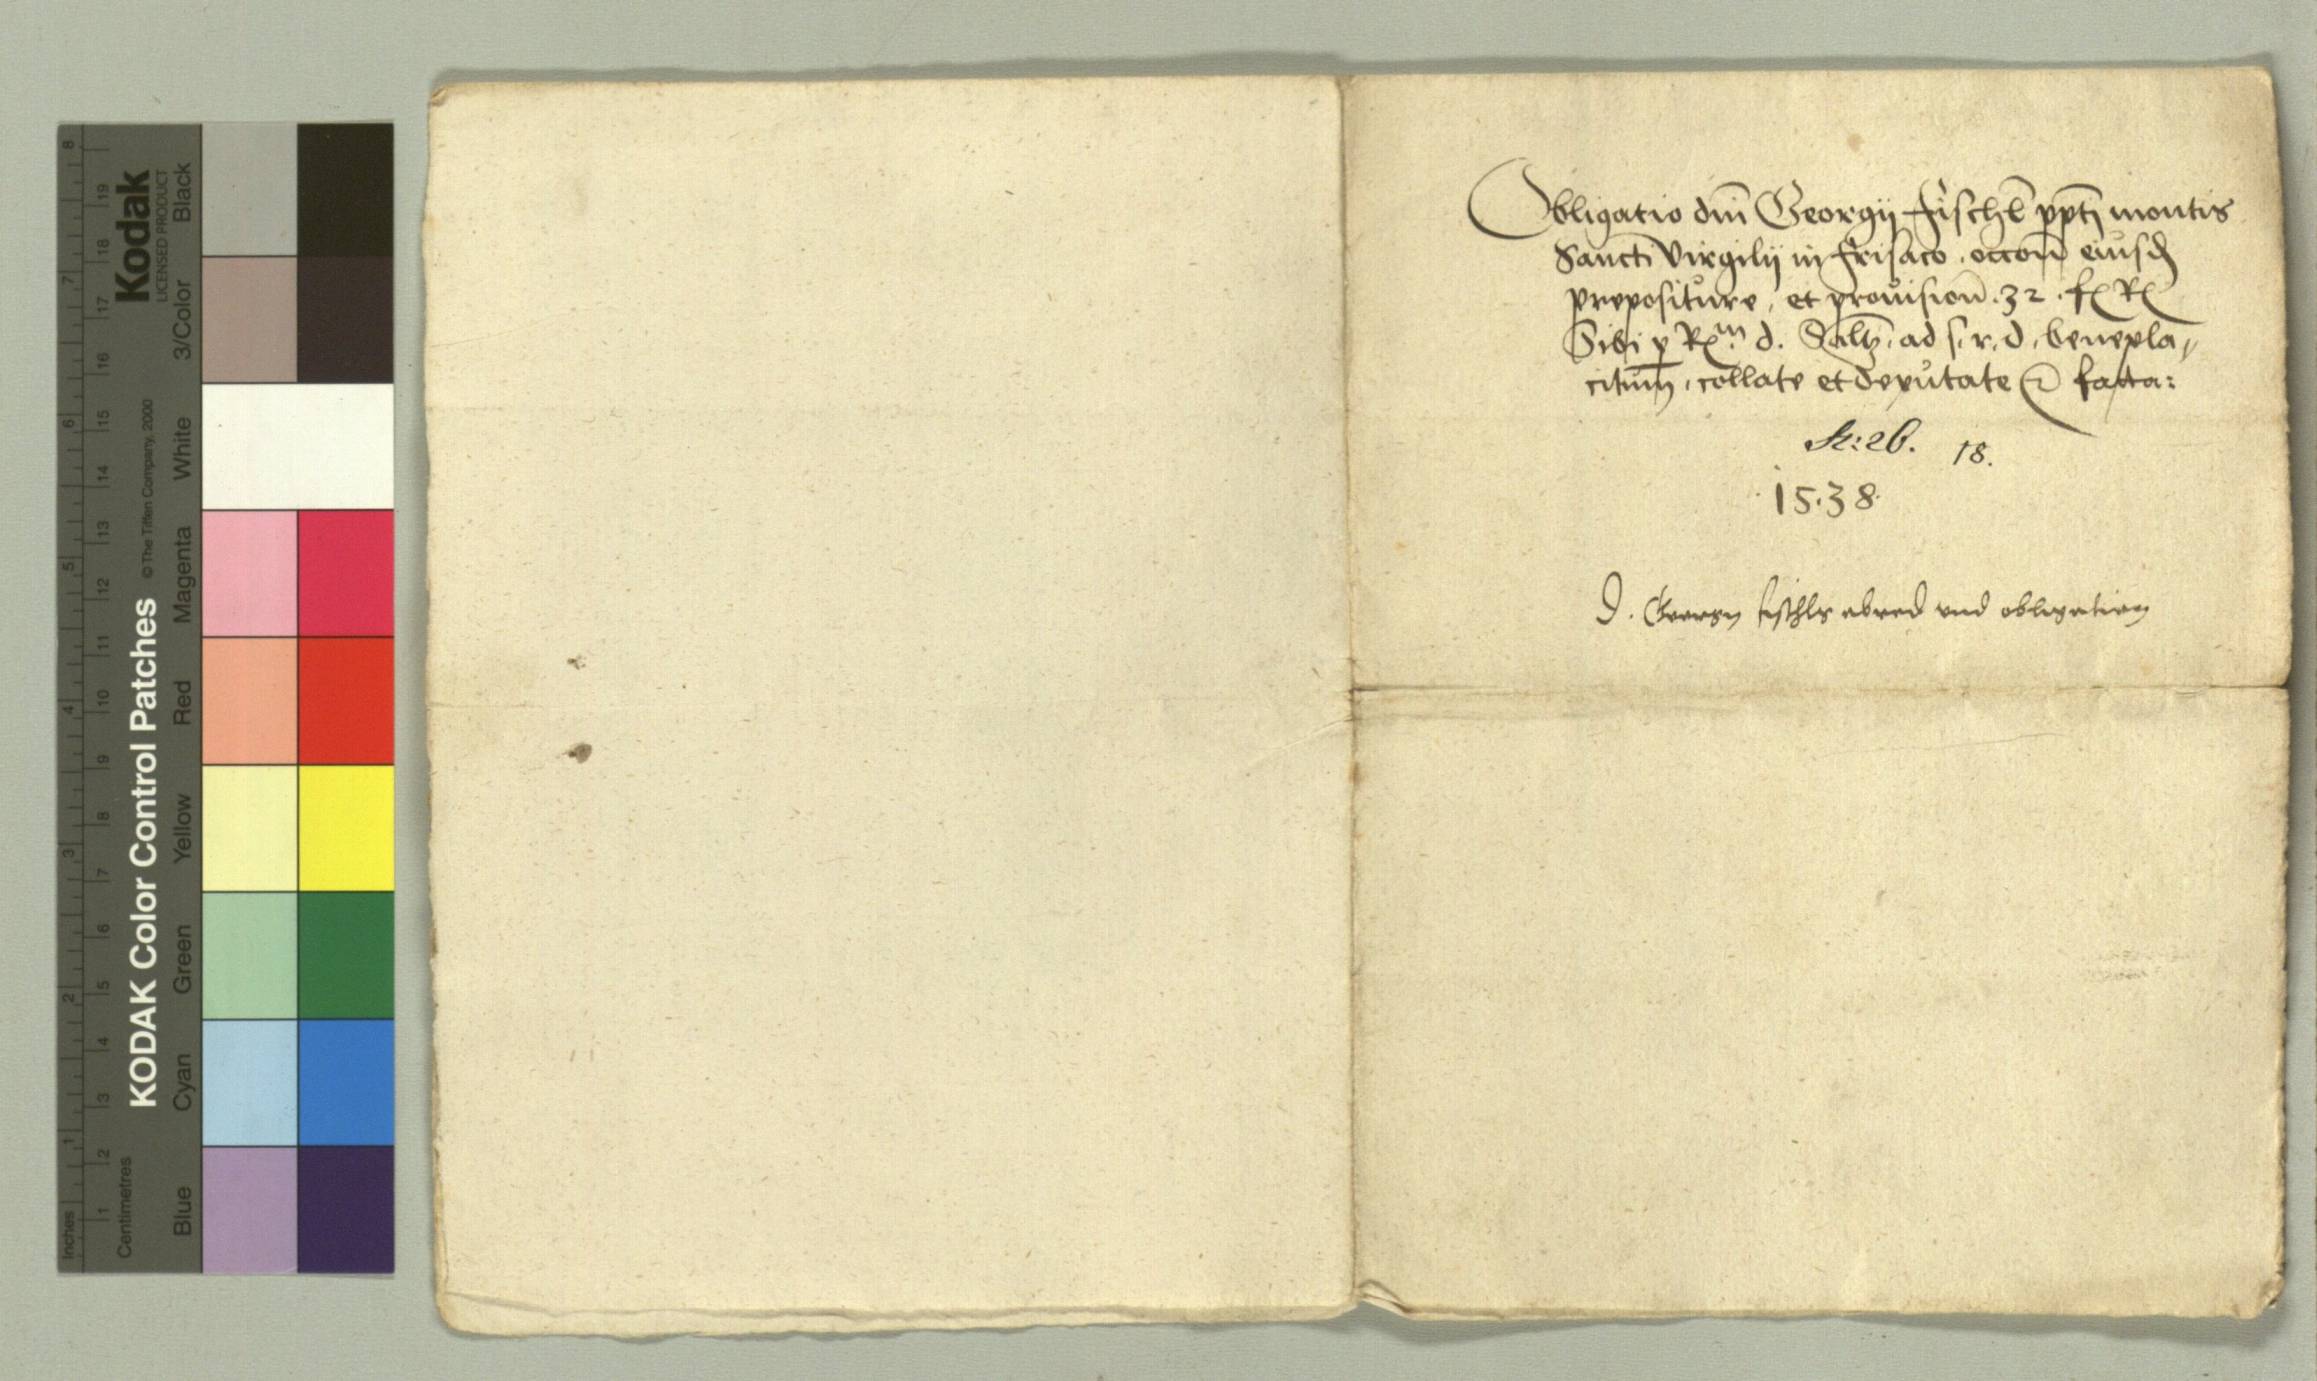 Obligatio dni Georgij Fischl ppti montis
Sancti Virgilij in Frisaco, occon eiusd
prepositure, et prouision. 32. fl Rh
Sibi p Rm. d. Saltz. ad s. r. d. benepla,,
citum, collate et deputate facta:
N: 26. 18.
15.38
D. Georgn fischls abred vnd obligation
Kodak
LICENSED PRODUCT
KODAK Color Control Patches
© The Tiffen Company, 2000
Black
3/Color
White
Magenta
Red
Yellow
Green
Cyan
Blue
Centimetres
Inches
1 2 3 4 5 6 7 8 9 10 11 12 13 14 15 16 17 18 19
1 2 3 4 5 6 7 8